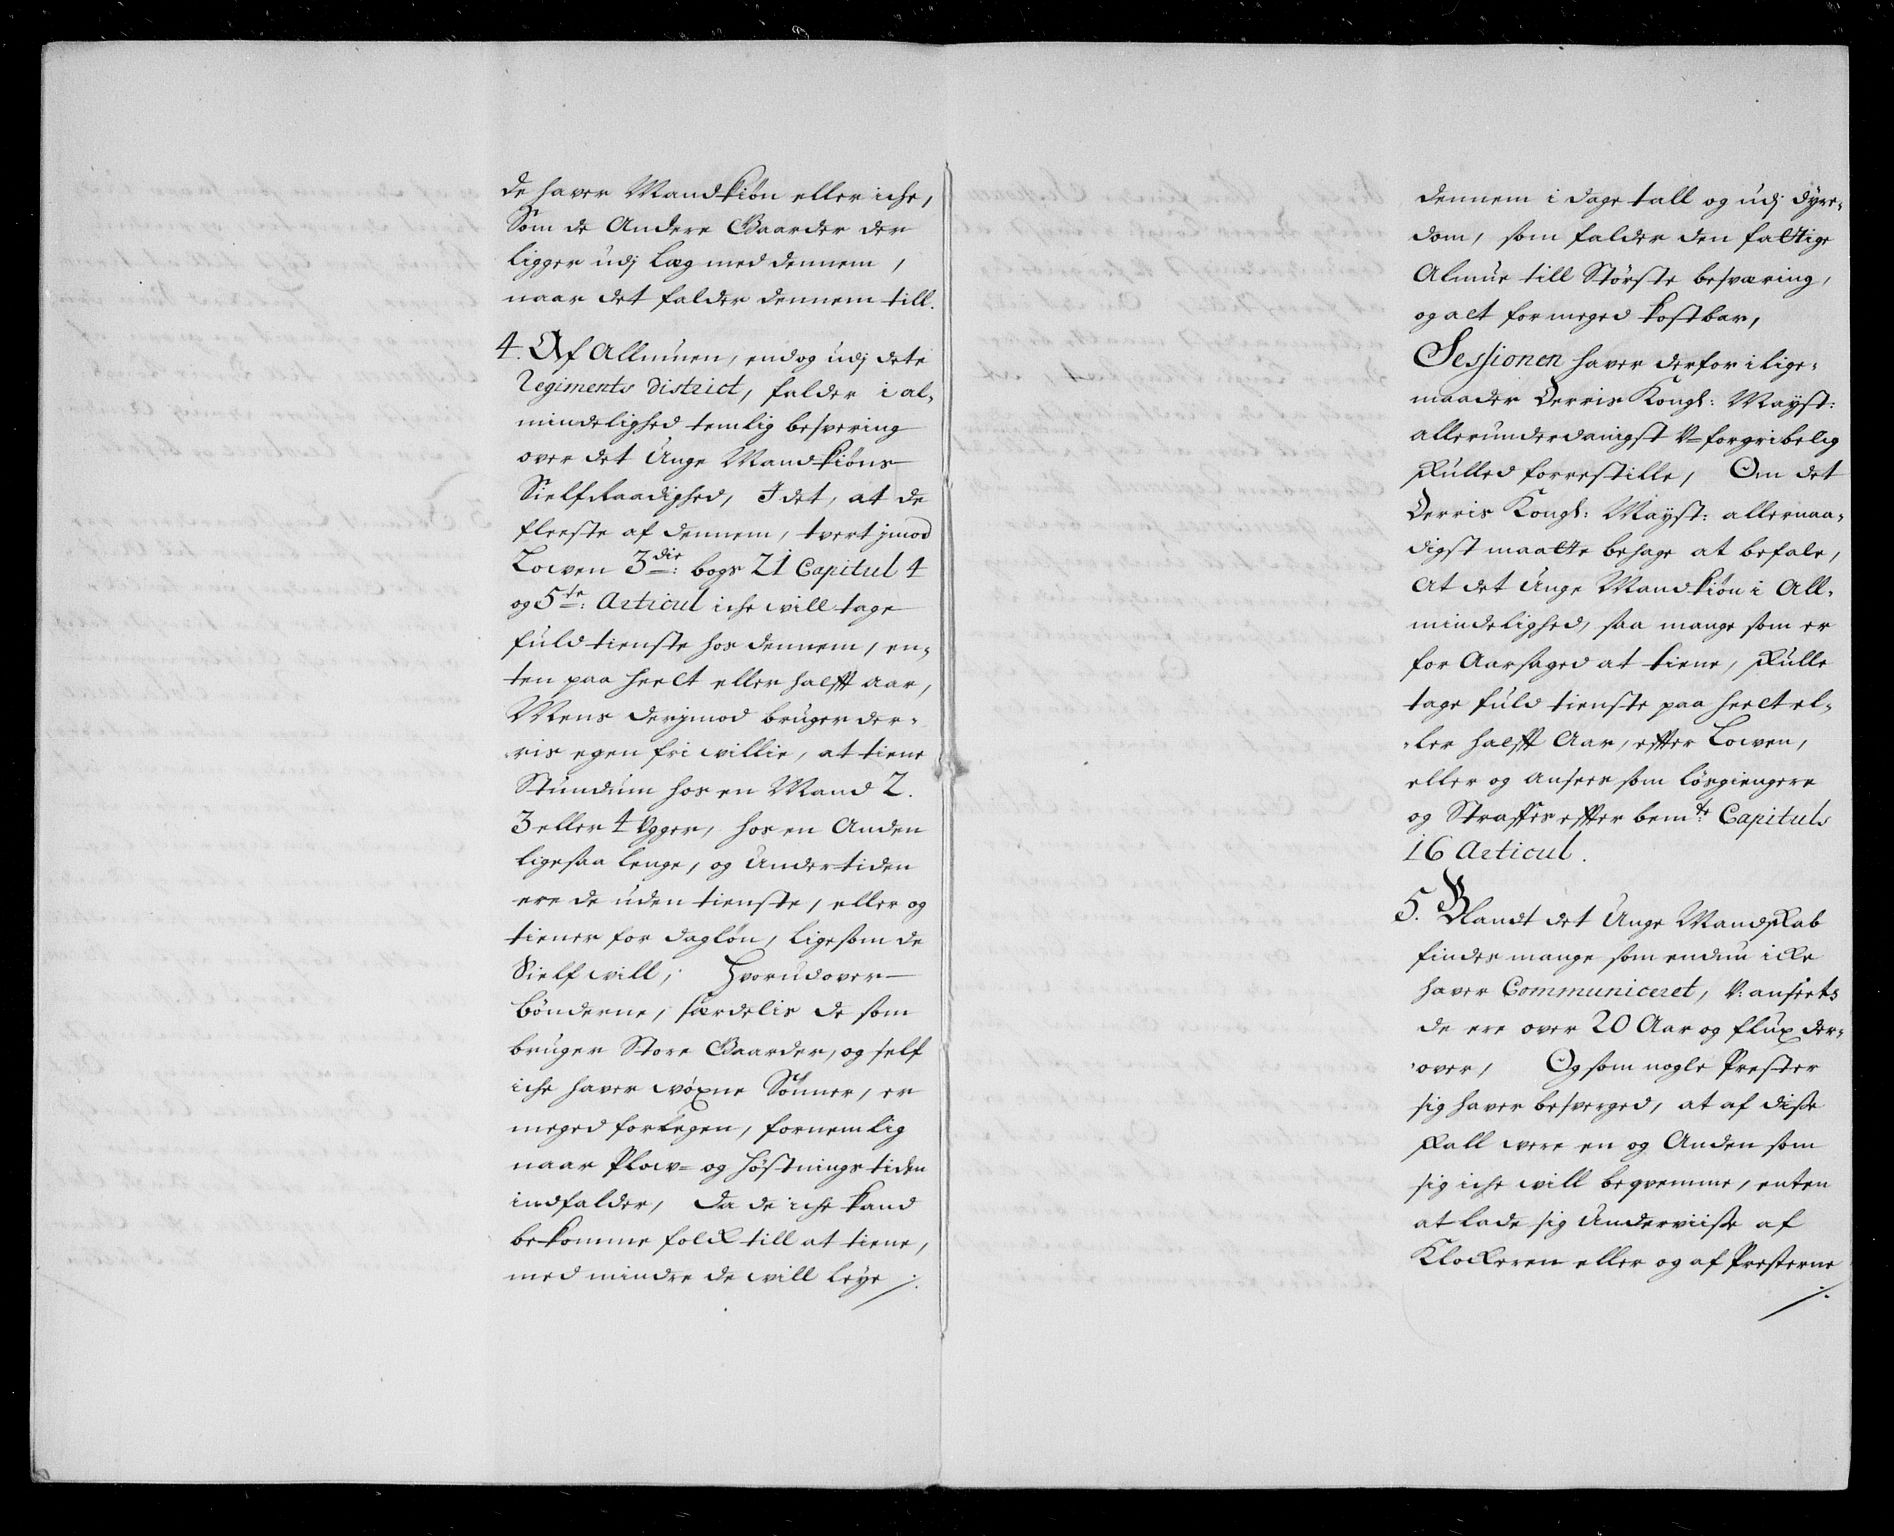 de haver Mandkiön eller iche,
Som de Andere Gaarder der
ligger udj Læg med dennem,
naar det falder dennem till.
4. Af Allmuen, endog udj dete
Regiments District, falder i al-
mindelighed temlig besvering
over det Unge Mandkiöns
Sielfraadighed, I det, at de
fleeste af dennem, tvert jmod
Lowen 3die: bogs 21 Capitul 4
og 5te: Articul iche will tage
fuld tienste hos dennem, en-
ten paa heelt eller halfft aar,
Mens derjmod bruger der-
-ris egen fri willie, at tiene
Stundum hos en Mand 2.
3 eller 4 Uger, hos en Anden
ligesaa lenge, og Undertiden
ere de uden tienste, eller og
tiener for daglön, ligesom de
Sielf will; Hvorudover
bönderne, særdelis de som
bruger Store Gaarder, og self
iche haver wöxne Sönner, er
meged forlegen, fornemlig
naar Plow- og Höstnings tiden
indfalder, Da de iche kand
bekomme folck till at tiene,
med mindre de will leye ·/.
dennem i dage tall og udj dyre-
dom, som falder den fattige
Almue till Störste besværing,
og alt for meged kostbar,
Sessionen haver derfor i lige-
maader Derris Kongl: Mayst:
allerunderdanigst U-forgribelig
skulled forrestille, Om det
Derris Kongl: Mayst: allernaa-
digst maatte behage at befale,
At det Unge Mandkiön i All-
mindelighed, saa mange som er
for Aarsaged at tiene, skulle
tage fuld tienste paa heelt el-
-ler halfft Aar, efter Lowen,
eller og ansees som lösgiengere
og Straffes effter bemte: Capituls
16 Articul.
5. Blandt det Unge Mandskab
findes mange som endnu icke
haver Communiceret, U-anseets
de ere over 20 Aar og flux der-
-over, Og som nogle Prester
sig haver besverged, at af disse
skall were en og Anden som
sig iche will beqvemme, enten
at lade sig Underviise af
Klockeren eller og af Presterne
·/.